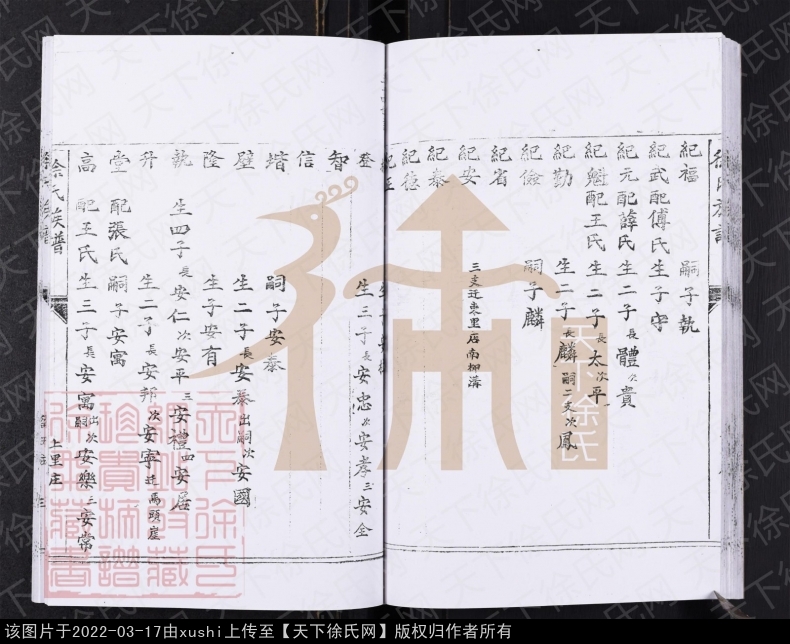 徐氏族譜
紀福 嗣子執
紀武配傅氏生子守
紀元配薛氏生二子長體次貴
紀魁配王氏生二子長太次平
紀勤 生二子長麟嗣二支次鳳
紀儉 嗣子麟
紀省
紀安 三支迁棗里店南柳溝
紀泰
紀德
登 生三子長安忠次安孝三安全
智
信
堦 嗣子安泰
壁 生二子長安泰出嗣次安國
隆 生子安有
執 生四子長安仁次安平三安禮四安居
升 生二子長安邦次安寧迁馬頭崖
堂 配張氏嗣子安寓
高 配王氏生三子長安寓出嗣次安樂三安常
徐氏族譜
上里庄
天下徐氏
该图片于2022-03-17由xushi上传至【天下徐氏网】版权归作者所有